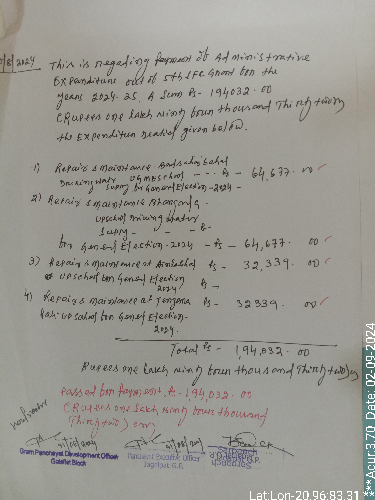 /8/2024 This is regading payment of Administrative
Expenditure out of 5th SFC Grant bon the
years 2024-25. A Sum Rs- 194032.00
(Rupees one Lakh Ninty boun thousand Thirty two)
the Expenditure neatid given below.
1) Repair & maintenance
Drinking water UGME School - - - Rs - 64,677.00
Supply bon General Election-2024 -
2) Retair & maintenance
upschool Drinking Water
Supply - - -
bon General Election-2024 - Rs - 64,677.00
3) Repair & maintenance at Rs - 32,339.00
upschool bon General Election
2024 Rs -
4) Repair & maintenance at Rs - 32339.00
upschool bon General Election-
2024.
Total Rs - 1,94,032.00
Rupees one Lakh Ninty boun thousand Thirty two
passed bon payment. Rs - 1,94,032.00
(Rupees one Lakh Ninty boun thousand
Thirty two) only
Gram Panchayat Development Officer
Golantar Block
Panchayat Executive Officer
Jagalpat G.P.
Sarpanch
***Acur:3.70 Date:02-09-2024
Lat:Lon-20.96:83.31